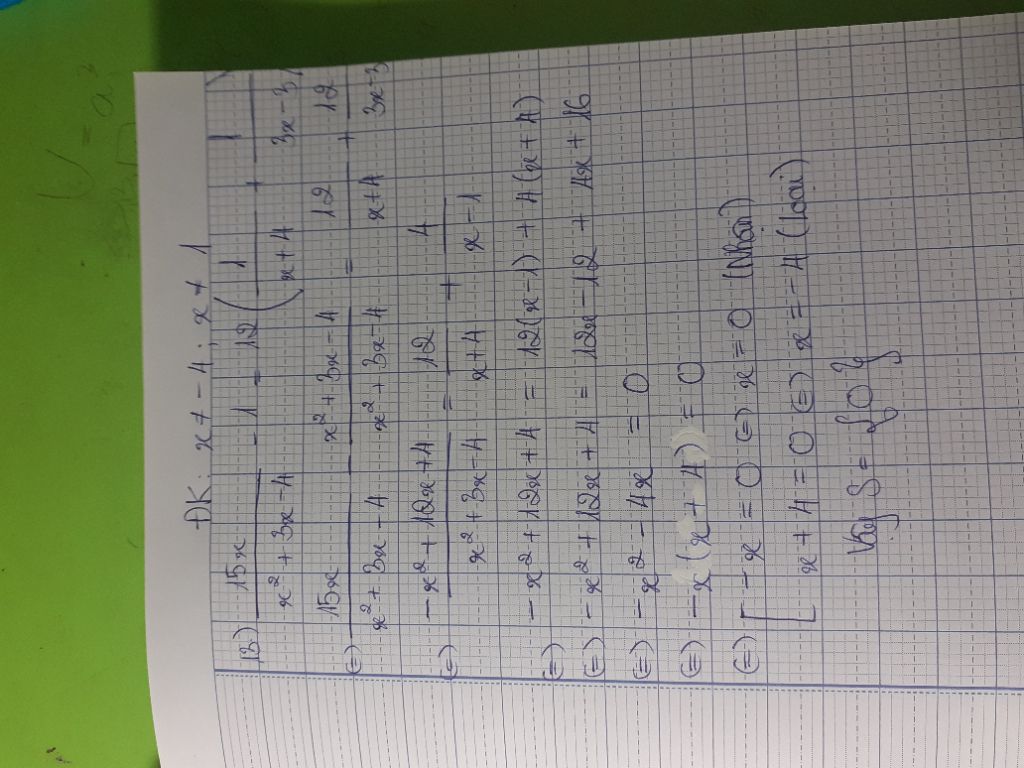 ĐK: x ≠ -4; x ≠ 1
13) 15x / (x² + 3x - 4) - 1 = 12 ( 1 / (x + 4) + 1 / (3x - 3) )
(=) 15x / (x² + 3x - 4) - (x² + 3x - 4) / (x² + 3x - 4) = 12 / (x + 4) + 12 / (3x - 3)
(=) (-x² + 12x + 4) / (x² + 3x - 4) = 12 / (x + 4) + 4 / (x - 1)
(=) -x² + 12x + 4 = 12(x - 1) + 4(x + 4)
(=) -x² + 12x + 4 = 12x - 12 + 4x + 16
(=) -x² - 4x = 0
(=) -x(x + 4) = 0
(=) [ -x = 0 (=) x = 0 (Nhận)
[ x + 4 = 0 (=) x = -4 (Loại)
Vậy S = {0}